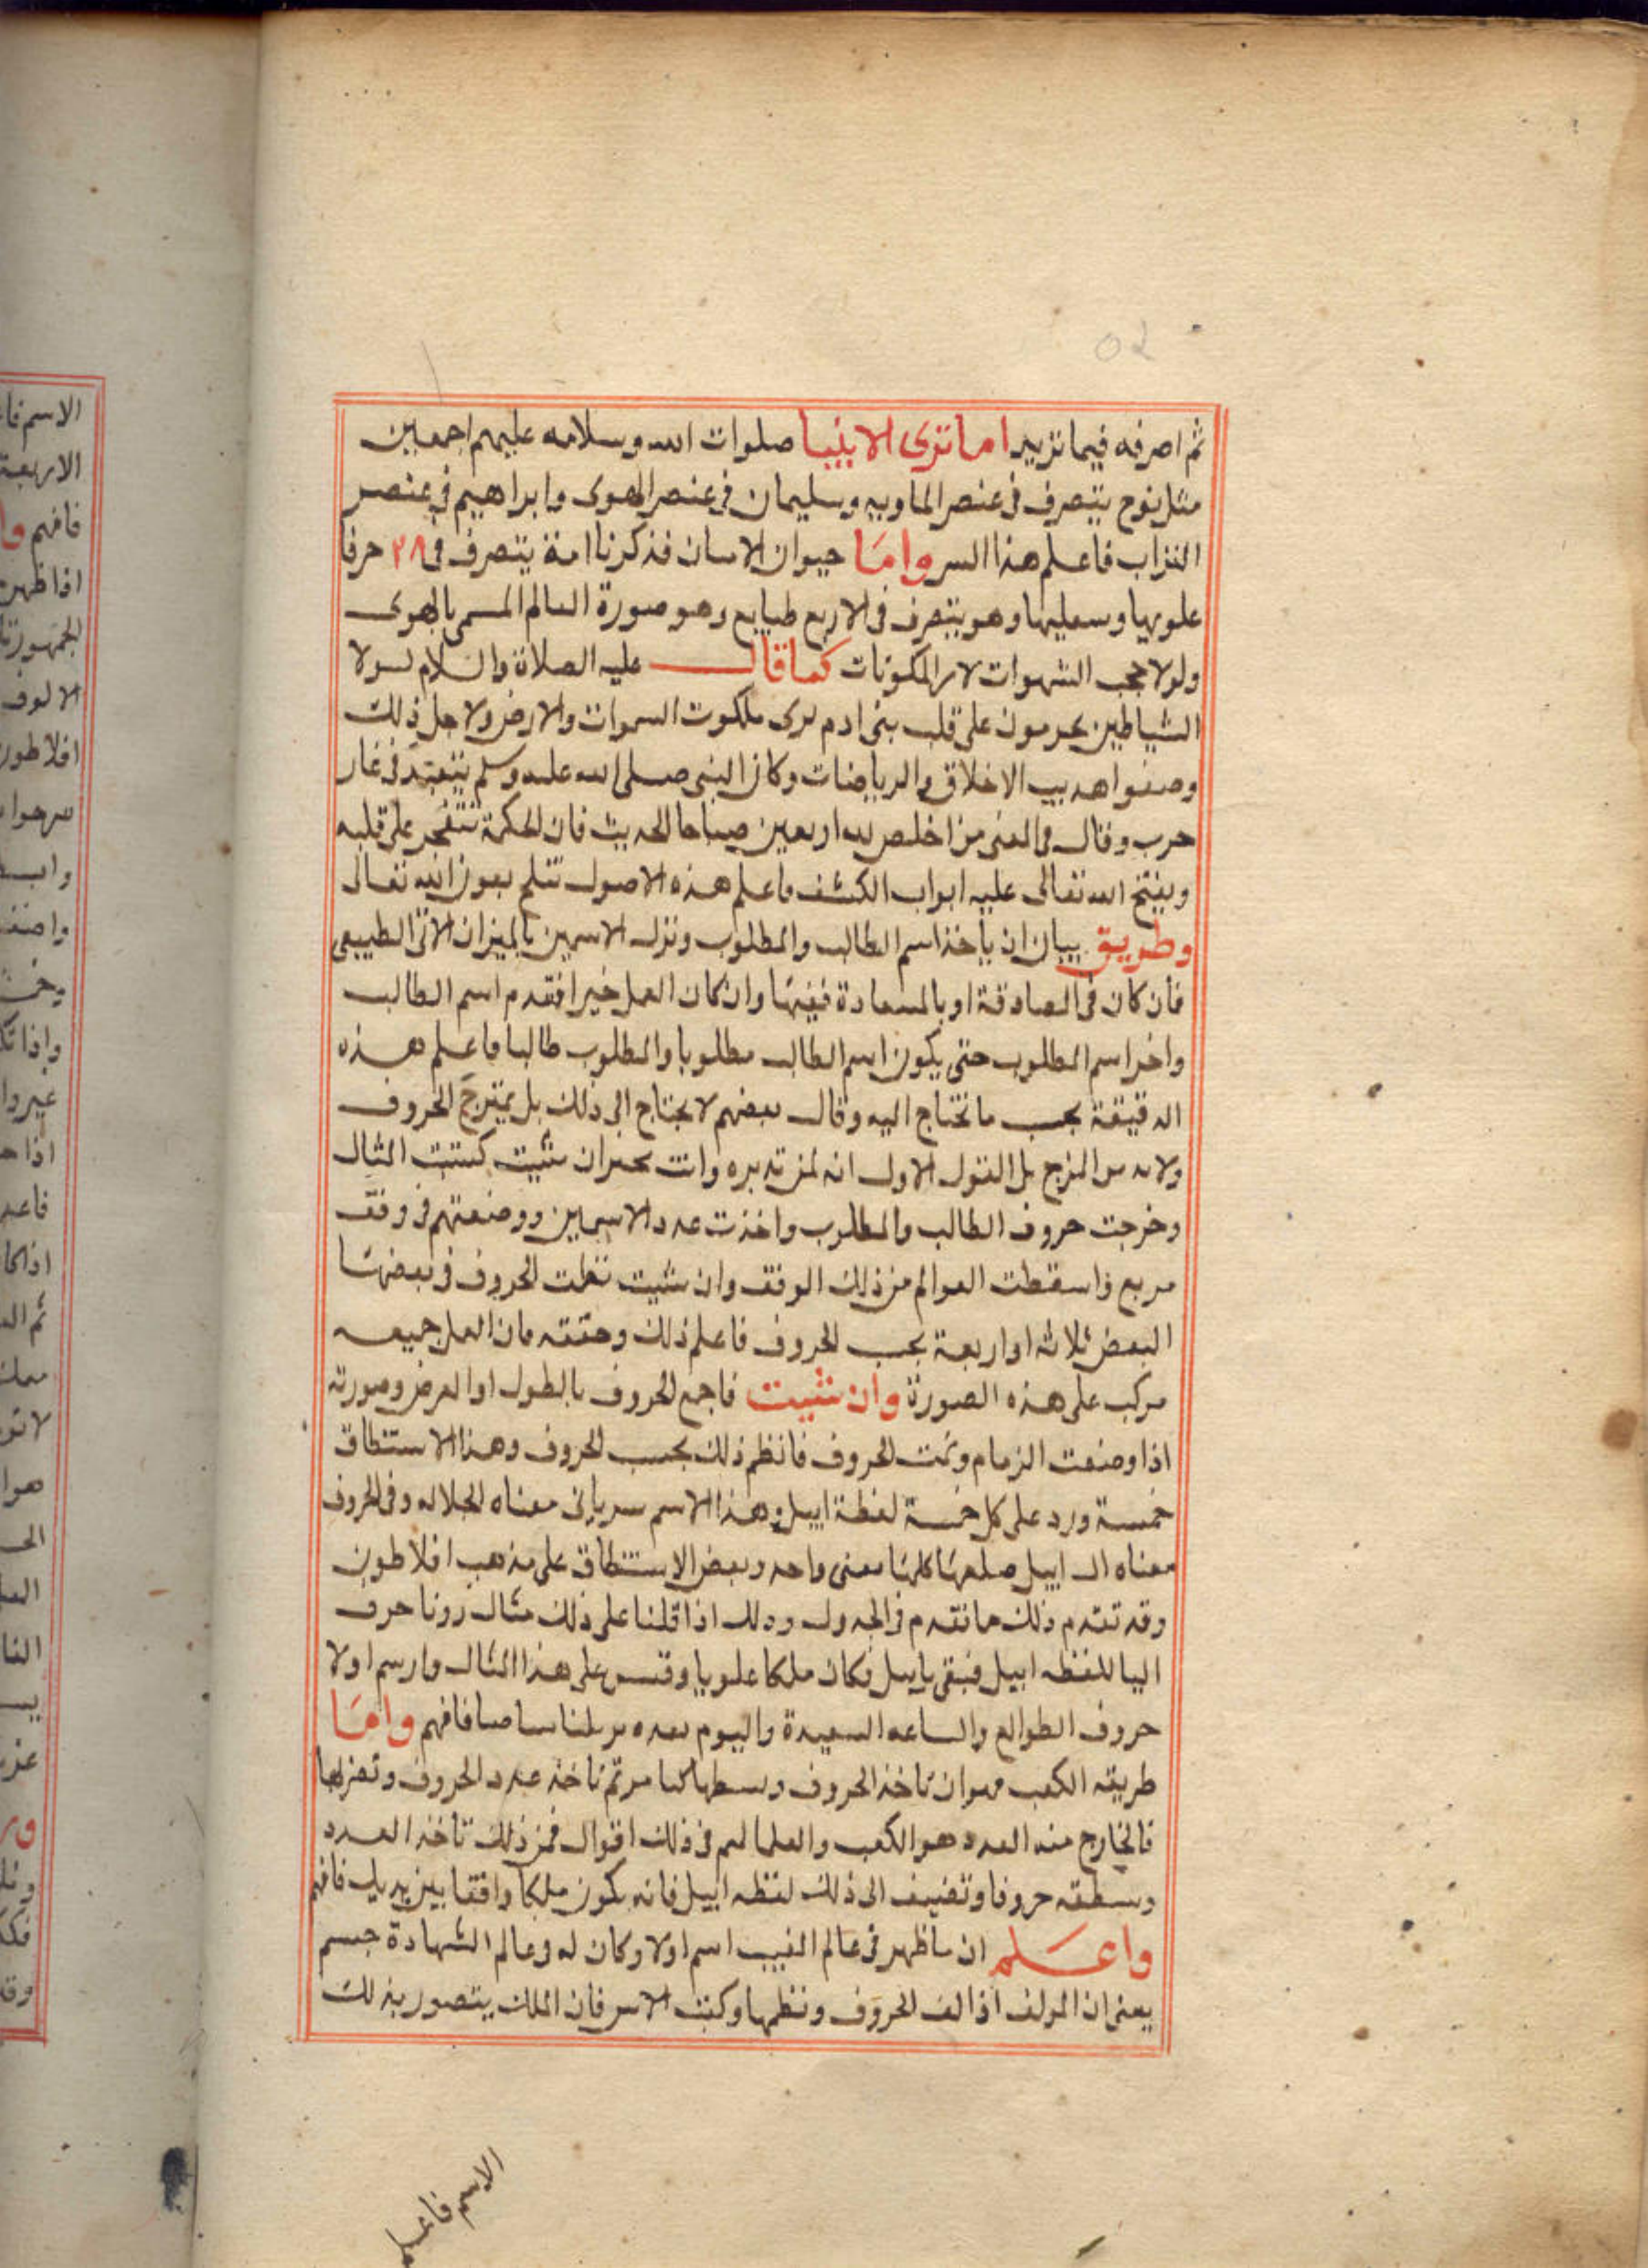 ثم اصرفه فيما تريد اما ترى الانبيا صلوات الله وسلامه عليهم اجمعين
مثل نوح يتصرف في عنصر الماويه وسليمان في عنصر الهوى وابراهيم في عنصر
التراب فاعلم هذا السر واما حيوان الانسان فذكرنا انه يتصرف في ٢٨ حرفا
علويها وسفليها وهو يتصرف في الاربع طبايع وهو صورة العالم المسمى بالهوى
ولولا حجب الشهوات المكونات كما قال عليه الصلاة والسلام لولا
الشياطين يحومون على قلب بنى ادم لرى ملكوت السموات والارض ولاجل ذلك
وصفوا الاخلاق والرياضات وكان النبى صلى الله عليه وسلم يتعبد في غار
حرب وقال في المعنى من اخلص لله اربعين صباحا الحديث فان الحكمة تتفجر على قلبه
ويفتح الله تعالى عليه ابواب الكشف فاعلم هذه الاصول بعون الله تعالى
وطريق بيان ان ياخذ اسم الطالب والمطلوب ونزل الاسمين بالميزان الاتى الطبيعى
فان كان في المصادقة او بالمعادة وان كان العمل خيرا فقدم اسم الطالب
واخر اسم المطلوب حتى يكون اسم الطالب مطلوبا والمطلوب طالبا فاعلم هذه
الدقيقة بحسب ما تحتاج اليه وقال بعضهم لا يحتاج الى ذلك بل يمتزج الحروف
ولا بد من المزج بل القول الاول انه لمن تدبره وانت مخير ان شيت كتبت المثال
وخرجت حروف الطالب والمطلوب واخذت عدد الاسمين ووضعتهم في وفق
مربع واسقطت العوالم من ذلك الوفق وان شيت نظمت الحروف في بعضها
البعض ثلاثه او اربعة بحسب الحروف فاعلم ذلك وحققه فان العمل جميعه
مركب على هذه الصورة وان شيت فاجمع الحروف بالطول او العرض وصورته
اذا وضعت الزمام وتمت الحروف فانظم ذلك بحسب الحروف وهذا الاستنطاق
خمسة ورد على كل خمسة لفظة اييل وهذا الاسم سريانى معناه الجلاله وفي الحروف
معناه ال اييل كلها معنى واحد وبعض الاستنطاق على مذهب افلاطون
وقد تقدم ذلك ما تقدم في الجدول وذلك اذا قلنا على ذلك مثال زدنا حرف
اليا للفظه اييل فبقى يا ييل فكان ملكا علويا وقس على هذا المثال وارسم اولا
حروف الطوالع والساعه السعيدة واليوم بعده فافهم واما
طريقه الكعب فهو ان تاخذ الحروف وبسطها كما مر ثم تاخذ عدد الحروف وتضربها
فالخارج منه العدد هو الكعب والعلما لهم في ذلك اقوال فمن ذلك تاخذ العدد
وبسطته حروفا وتضيف الى ذلك لفظه اييل فانه يكون ملكا واقفا بين يديك فافهم
واعلم ان ما ظهر في عالم الغيب اسم اولا وكان له في عالم الشهادة جسم
يعنى ان المولف اذا الف الحروف ونظمها وكتبت الاسم فان الملك يتصور بذلك
الاسم فاعلم